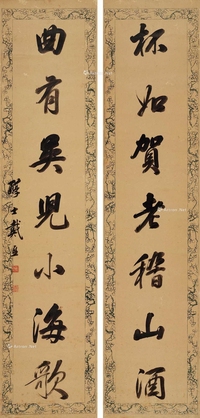 杯如賀老稽山酒
曲有吳兒小海歌
醇士戴熙